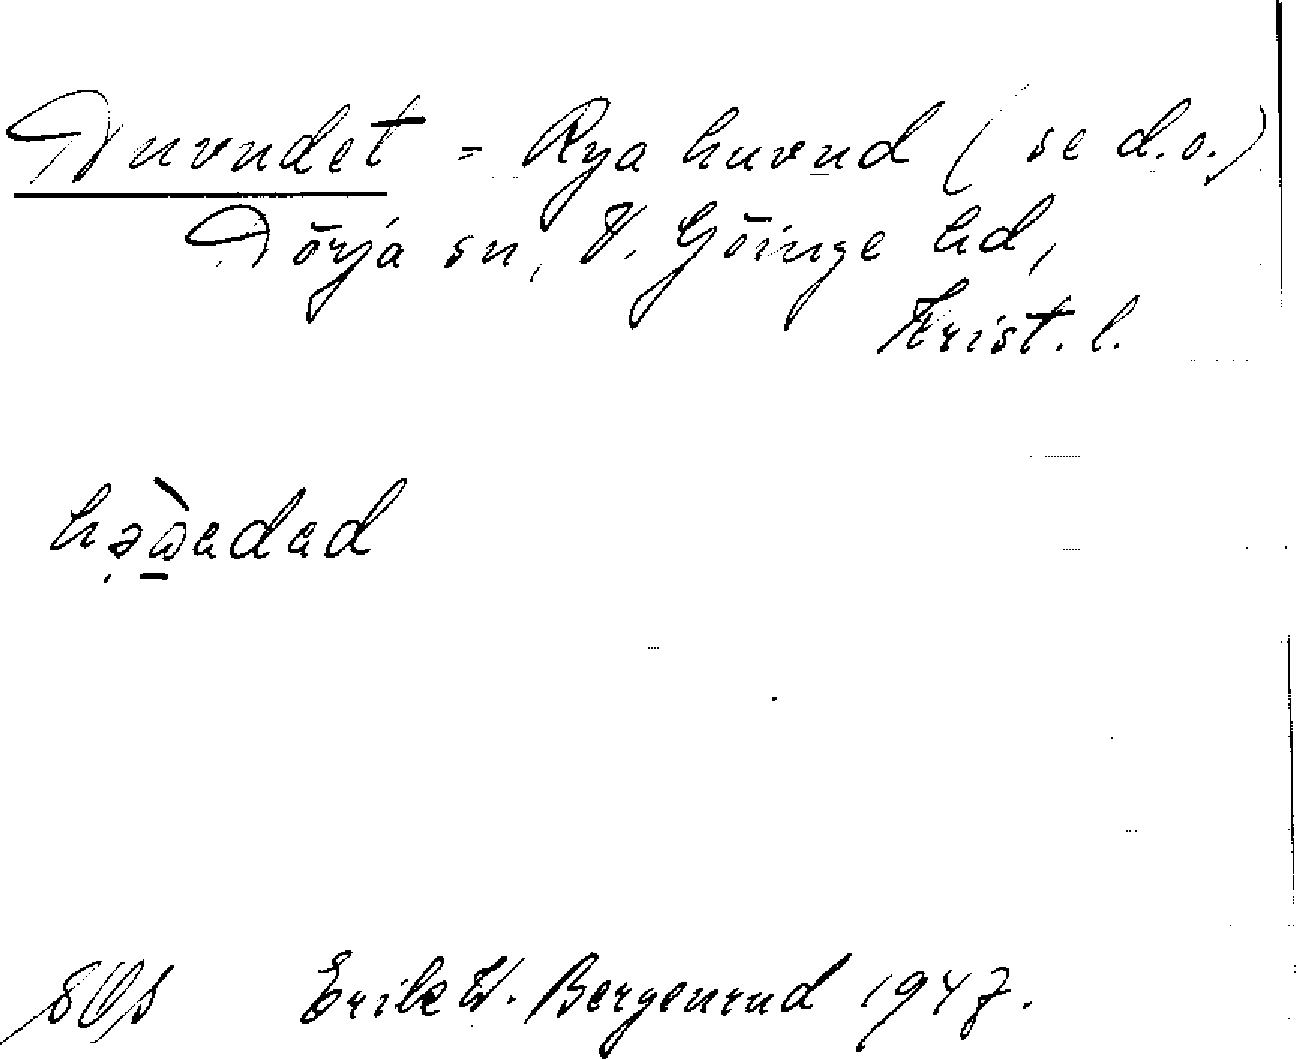 Huvudet = Rya huvud (se d.o.)
Hörja sn, V. Göinge hd,
Krist. l.
Erik W. Bergenrud 1947.